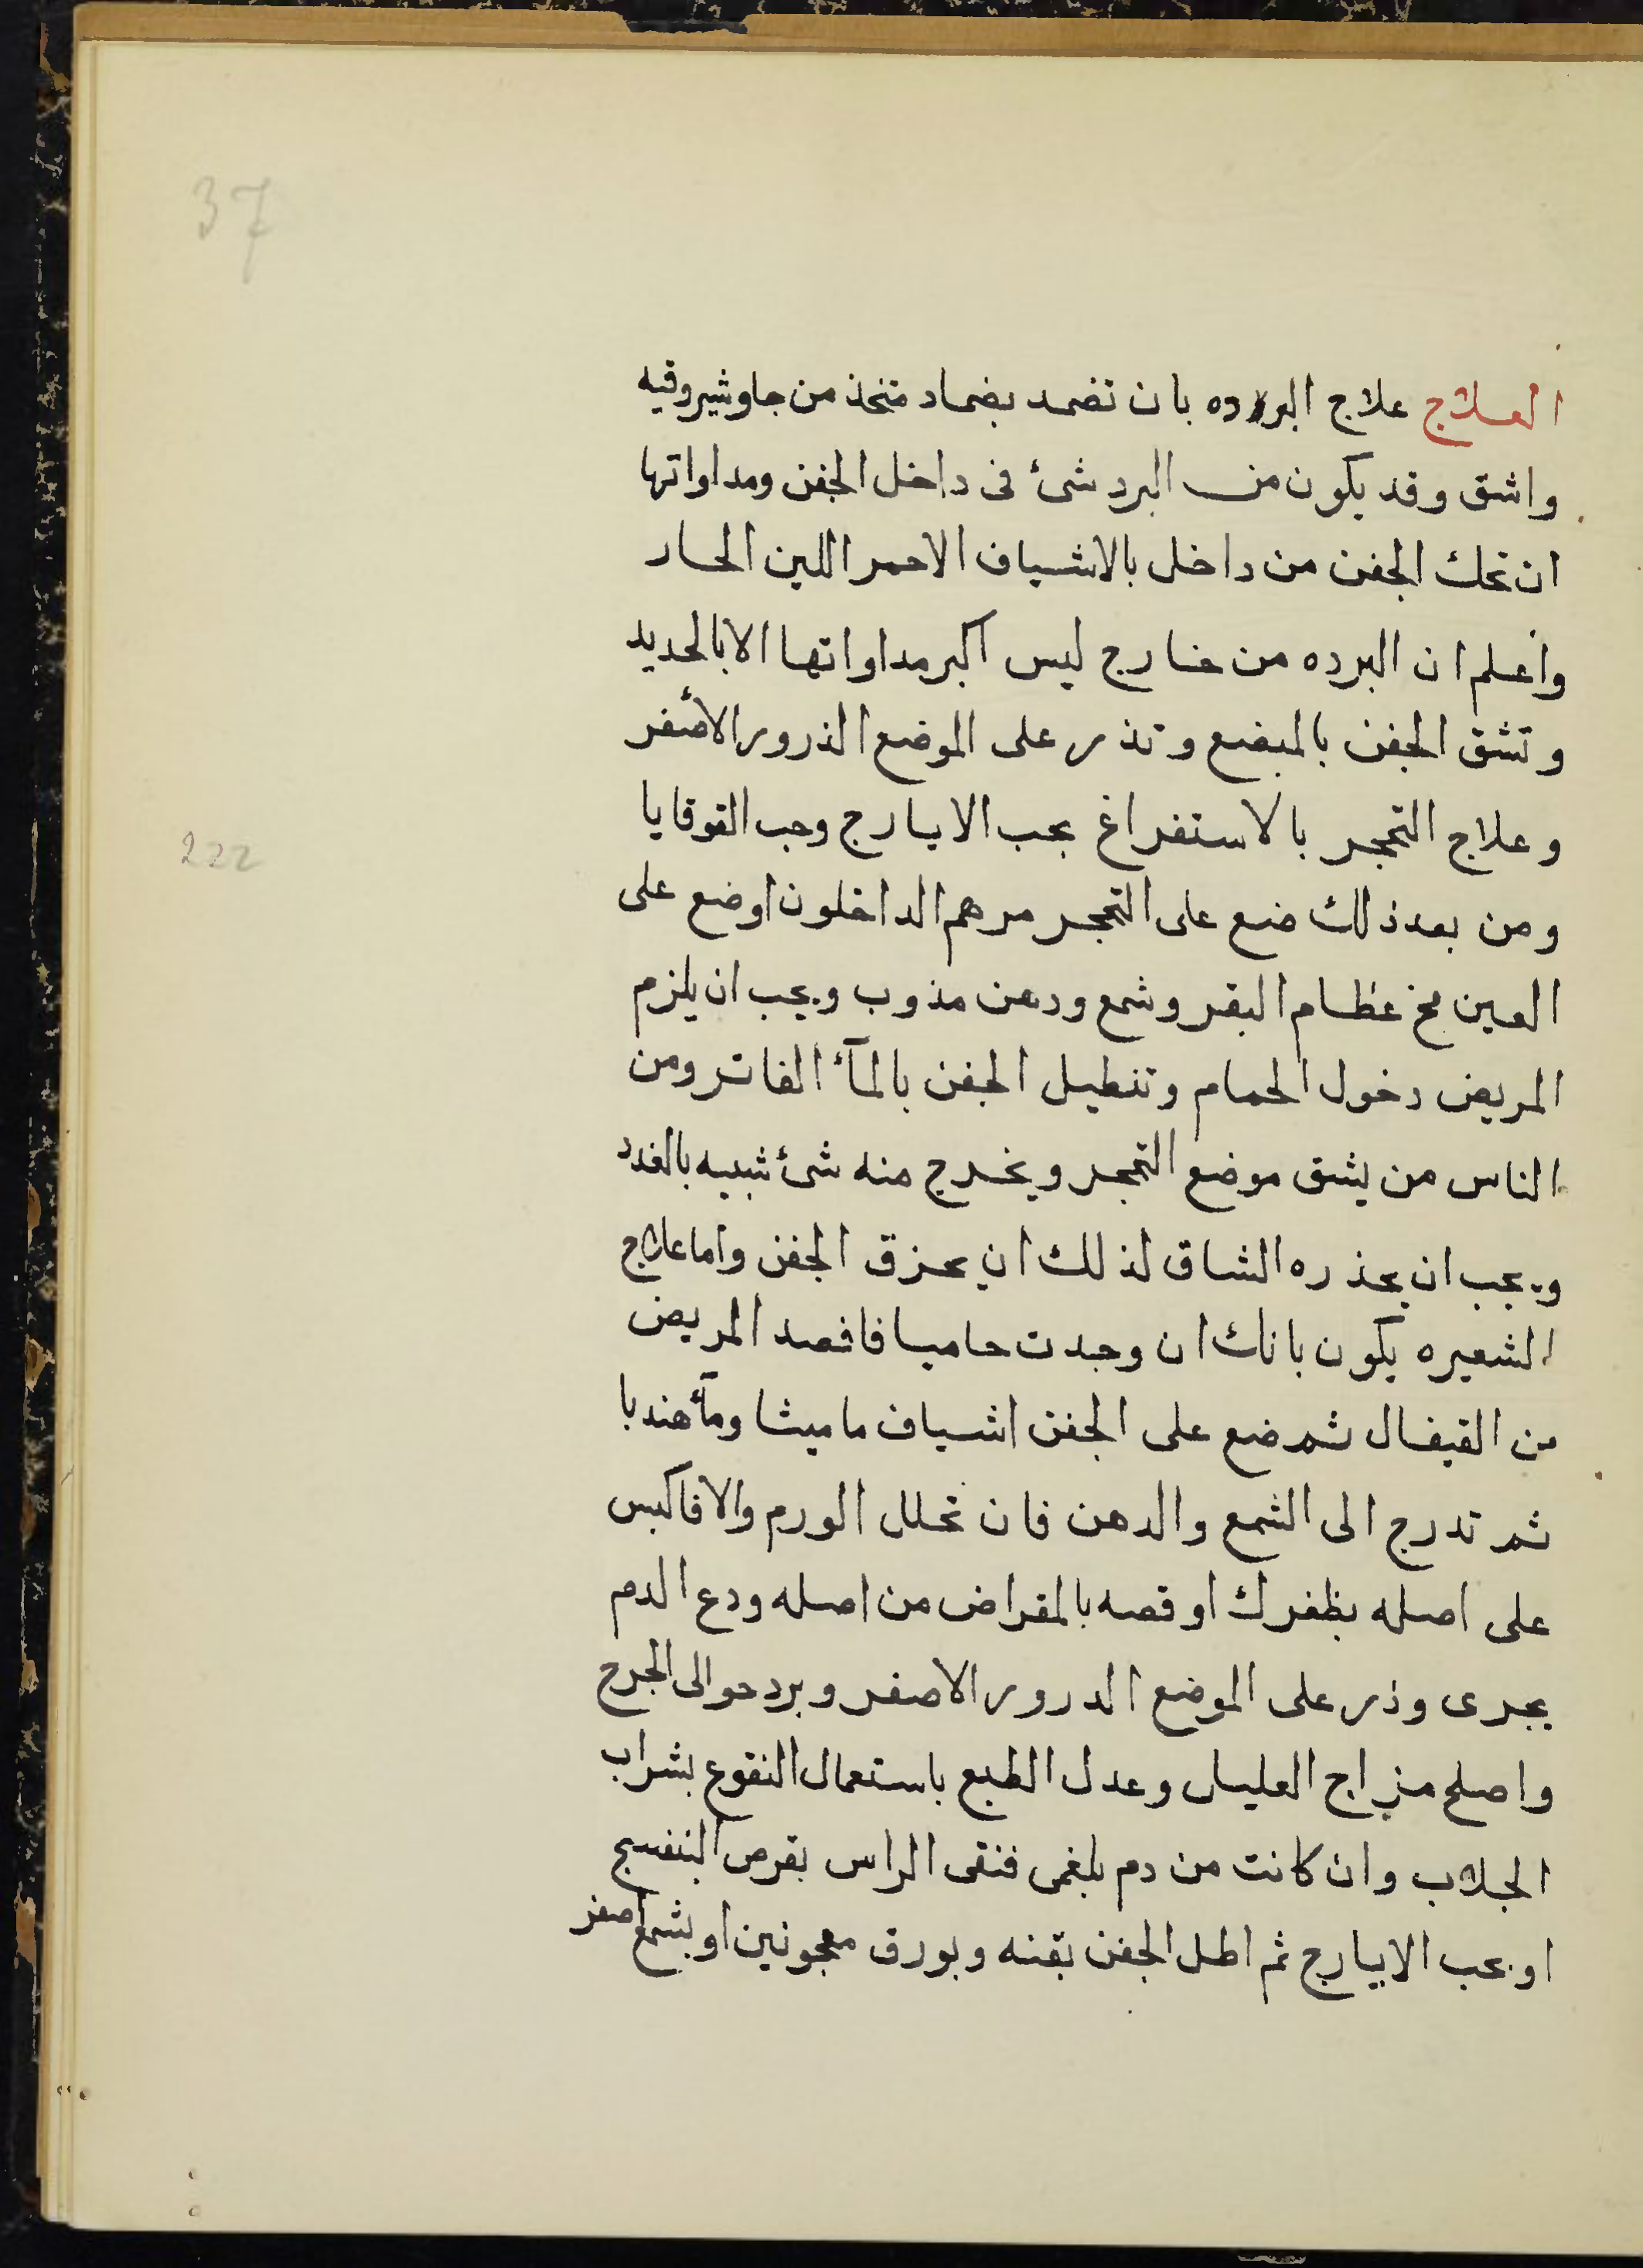 37
العلاج علاج البرده بان تضمد بضماد متخذ من جاوشير وقيه
واشق وقد يكون من البرد شئ فى داخل الجفن ومداواتها
ان تحك الجفن من داخل بالاشياف الاحمر اللين الحار
واعلم ان البرده من خارج ليس اكبر مداواتها الا بالحديد
وتشق الجفن بالمبضع وتذر على الموضع الذرور الاصفر
وعلاج التحجر بالاستفراغ بحب الايارج وحب القوقايا
222
ومن بعد ذلك ضع على التحجر مرهم الداخلون اوضع على
العين مخ عظام البقر وشمع ودهن مذوب ويجب ان يلزم
المريض دخول الحمام وتنطيل الجفن بالمآء الفاتر ومن
الناس من يشق موضع التحجر ويخرج منه شئ شبيه بالغدد
ويجب ان يحذره الشاق لذلك ان يحزق الجفن واما علاج
الشعيره يكون بانك ان وجدت حاميا فافصد المريض
من القيفال ثم ضع على الجفن اشياف ماميثا ومآء هندبا
ثم تدرج الى الشمع والدهن فان تحلل الورم والا فاكبس
على اصله بظفرك او قصه بالمقراض من اصله ودع الدم
يجرى وذر على الموضع الدرور الاصفر وبرد حوالى الجرح
واصلح مزاج العليل وعدل الطبع باستعمال النقوع بشراب
الجلاب وان كانت من دم بلغمى فنقى الراس بقرص البنفسج
او بحب الايارج ثم اطل الجفن بقنه وبورق معجونين او بشمع اصفر